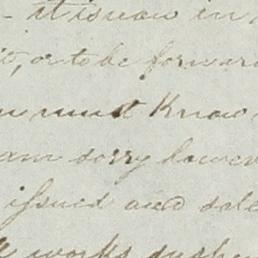 - it is now in
it, or to be forward
must Know
am sorry however
issued and sale
works